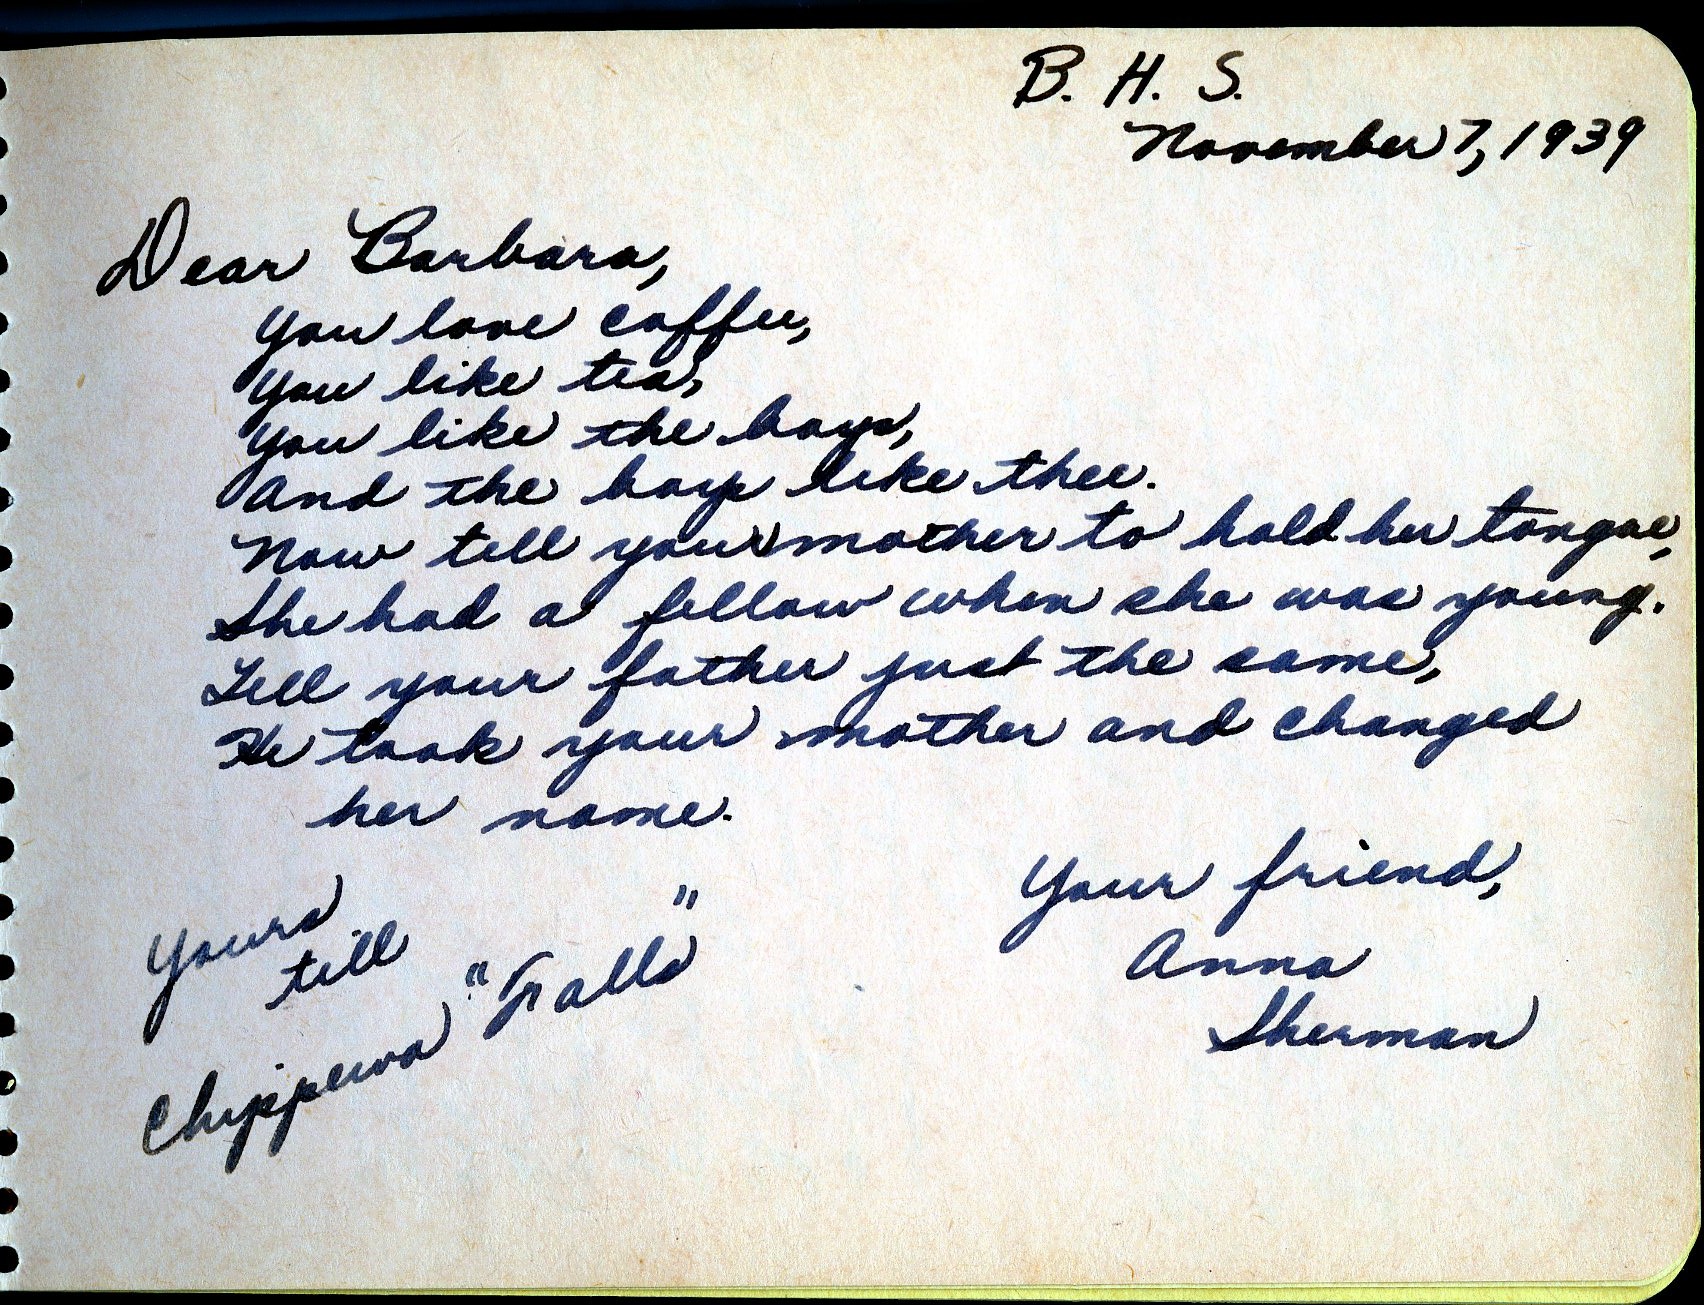 B. H. S.
November 7, 1939
Dear Barbara,
You love coffee,
You like tea,
You like the boys,
And the boys like thee.
Now tell your mother to hold her tongue,
She had a fellow when she was young.
Tell your father just the same,
He took your mother and changed
her name.
Your friend,
Anna
Sherman
Yours
till
Chippewa "Falls"